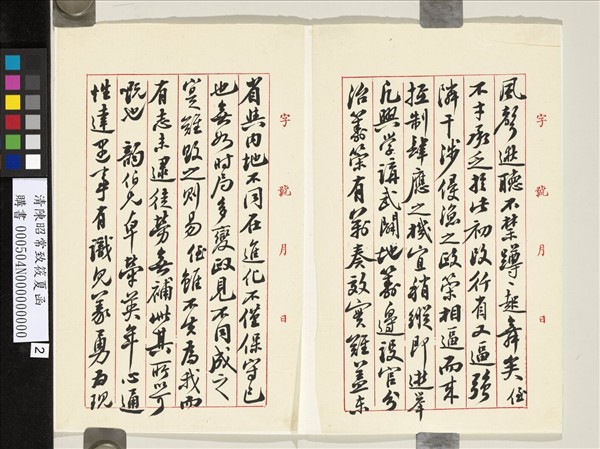 字 號 月 日
風聲逖聽不禁蹲蹲起舞矣侄
不才承乏于此初政行省又逼強
隣干涉侵漁之政策相逼而來
控制肆應之機宜稍縱即逝舉
凡興學講武闢地籌邊設官分
治籌策有萬奏效實難蓋東
省與內地不同在進化不僅保守已
也無如時局多變政見不同成之
寔難毀之則易侄雖不失為我而
有志未逮徒勞無補此其所以可
慨也 韻伯兄卓犖英年心通
性達遇事有識見義勇為現
清陳昭常致筱夏函
購書 000504N000000000
2